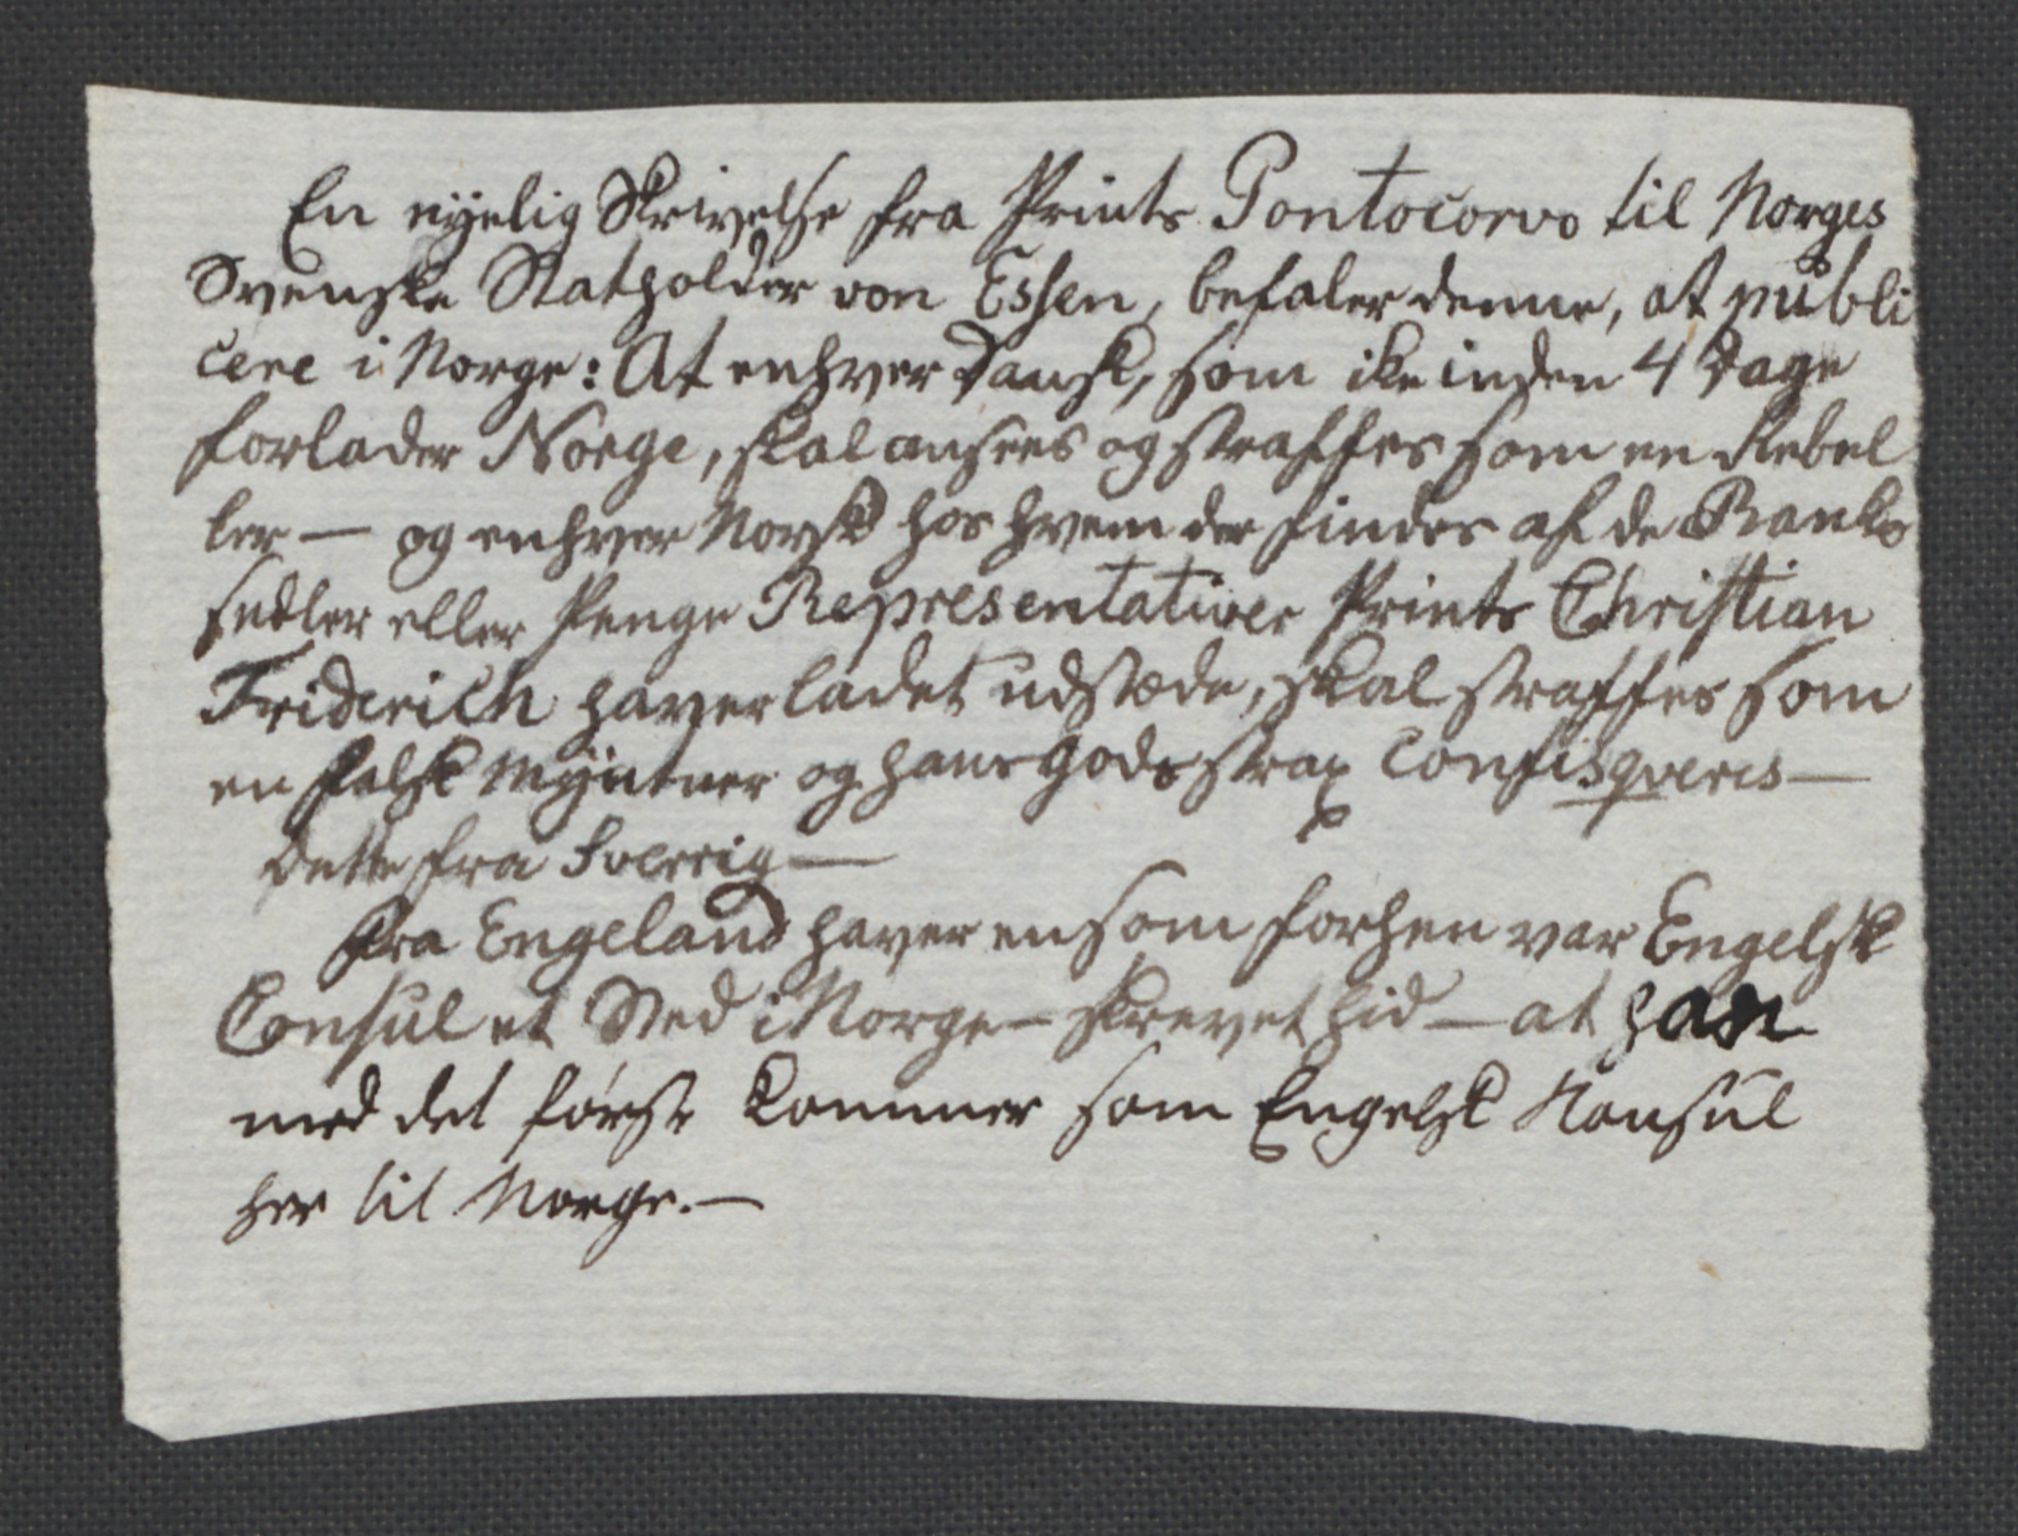 En nyelig Skrivelse fra Prints Pontocorvo til Norges
Svenske Statholder von Essen, befaler denne, at publi
cere i Norge: At enhver Dansk, som ike inden 4 Dage
forlader Norge, skal ansees og straffes som en Rebel
ler — og enhver Norsk hos hvem der findes af de Banko
sedler eller Penge Representativer Prints Christian
Friderich haver ladet udstæde, skal straffes som
en falsk Myntner og hans Gods strax confisqveres —
Dette fra Sverrig —
Fra Engeland haver en som forhen var Engelsk
Consul et Sted i Norge — skrevet hid — at han
med det første kommer som Engelsk Konsul
her til Norge. —